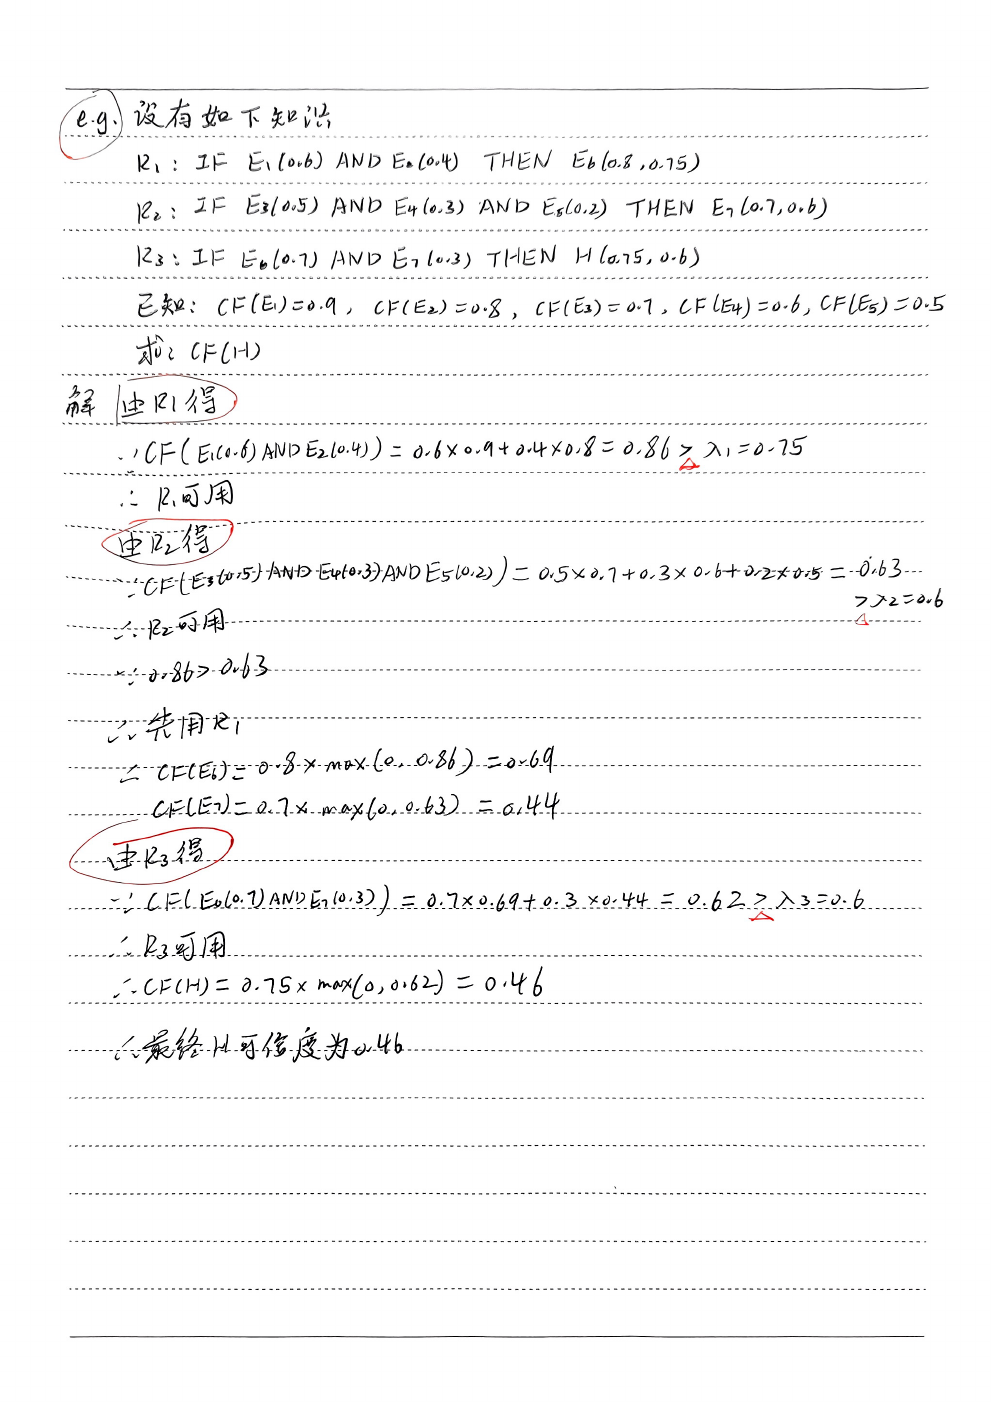 e.g. 设有如下知识
R₁: IF E₁(0.6) AND E₂(0.4) THEN E6(0.8,0.75)
R₂: IF E3(0.5) AND E4(0.3) AND E5(0.2) THEN E7(0.7,0.6)
R3: IF E6(0.7) AND E7(0.3) THEN H(0.75,0.6)
已知: CF(E₁)=0.9, CF(E₂)=0.8, CF(E3)=0.7, CF(E4)=0.6, CF(E5)=0.5
求: CF(H)
解 由R1得
∵CF(E₁(0.6)AND E2(0.4))=0.6×0.9+0.4×0.8=0.86>λ₁=0.75
∴ R₁可用
由R2得
∵CF(E3(0.5) AND E4(0.3)AND E5(0.2))=0.5×0.7+0.3×0.6+0.2×0.5=0.63
>λ2=0.6
∴ R2可用
∵ 0.86>0.63
∴ 先用R₁
∴ CF(E6)=0.8×max(0, 0.86)=0.69
CF(E7)=0.7×max(0, 0.63)=0.44
由R3得
∵ CF(E6(0.7)AND E7(0.3))=0.7×0.69+0.3×0.44=0.62>λ3=0.6
∴ R3可用
∴CF(H)=0.75×max(0,0.62)=0.46
∴最终H可信度为0.46